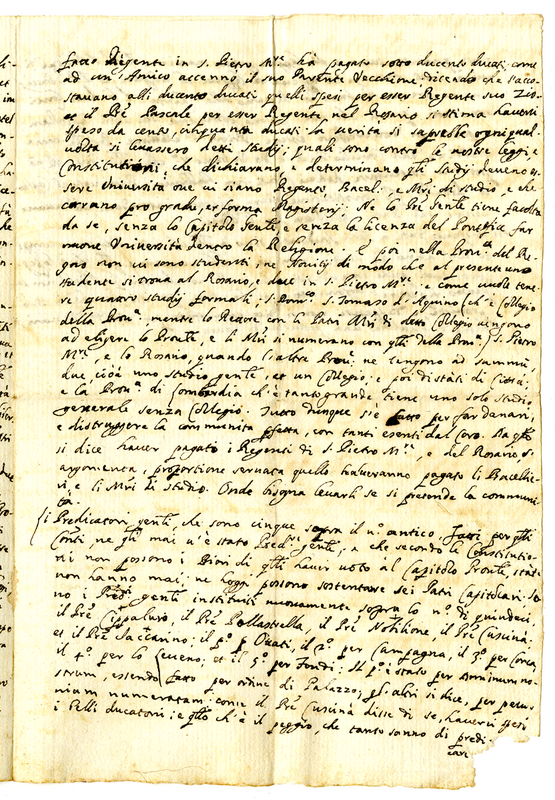 fatto Regente in S. Pietro M.re ha pagato sotto ducento ducati come
ad un' Amico accennò il suo Parente Vecchione dicendo che s'acco-
stavano alli ducento ducati quelli spesi per esser Regente suo Zio
et il Pre Pascale per esser Regente nel Rosario si stima haverli
speso da cento, cinquanta ducati la verità si saprebbe ogni qual
volta si levassero detti studij; quali sono contro le nostre leggi, e
Constitutioni, che dichiarano, e determinano, gli studij devono es-
sere Università ove vi siano Regente, Bacel. e Mri di studio, e che
corrano pro gradu, et forma Magisterij; Ne lo Pre Gen.le tiene facoltà
da se, senza lo Capitolo Gen.le, e senza la licenza del Pontefice far
nuove Università dentro la Religione. E poi nella Prov.a del Re-
gno non vi sono studenti, ne Novitij di modo che al presente uno
studente si trova al Rosario, e due in S. Pietro M.re e come vuole tene-
re quattro studij formali; S. Dom.co S. Tomaso d'Aquino (ch'è Collegio
della Prov.a mentre lo Rettore con li Patri Mri di detto Collegio vengono
ad eligere lo Pro.le, e li Mri si numerano con q.lli della Prov.a) S. Pietro
M.re, e lo Rosario, quando l'altre Prov.e ne tengono ad summum,
due, cioè uno studio gen.le, et un Collegio, e poi di stati di Chiesa,
e la Prov.a di Lombardia ch'è tanto grande, tiene uno solo studio
generale senza Collegio. Tutto dunque s'è fatto per far danari,
e distruggere la communità p.fetta, con tanti esenti dal Coro. Da q.llo
si dice haver pagato i Regenti di S. Pietro M.re, e del Rosario s'
argomenta, proportione servata quello haveranno pagato li Baccellie-
ri, e li Mri di studio. Onde bisogna levarli se si pretende la communi-
tà.
Li Predicatori gen.li, che sono cinque sopra il n.o antico fatti per q.lli
Conti, ne gli mai v'è stato Pred.re gen.le, e che secondo le Constitutio-
ni non possono i Priori di q.lli haver voto al Capitolo Pro.le,
non hanno mai, ne hoggi possono sostentare sei Patri Capitolari. So-
no i Pred.ri gen.li instituiti nuovamente sopra lo n.o di quindeci,
il Pre Cippaluro, il Pre Pollastrella, il Pre Nobilione, il Pre Cuscinà
et il Pre Saccarino; il p.o p Ovati, il 2.o per Campagna, il 3.o per Corca,
il 4.o per lo Ceveno, et il 5.o per Fondi; Il p.o è stato per Arminum no-
strum, essendo fatto per ordine di Palazzo; gl'altri si dice, per pecu-
niam numeratam: come il Pre Cuscinà disse di se, haverci spesi
i belli ducatoni; e q.llo ch'è il peggio, che tanto sanno di predi-
care